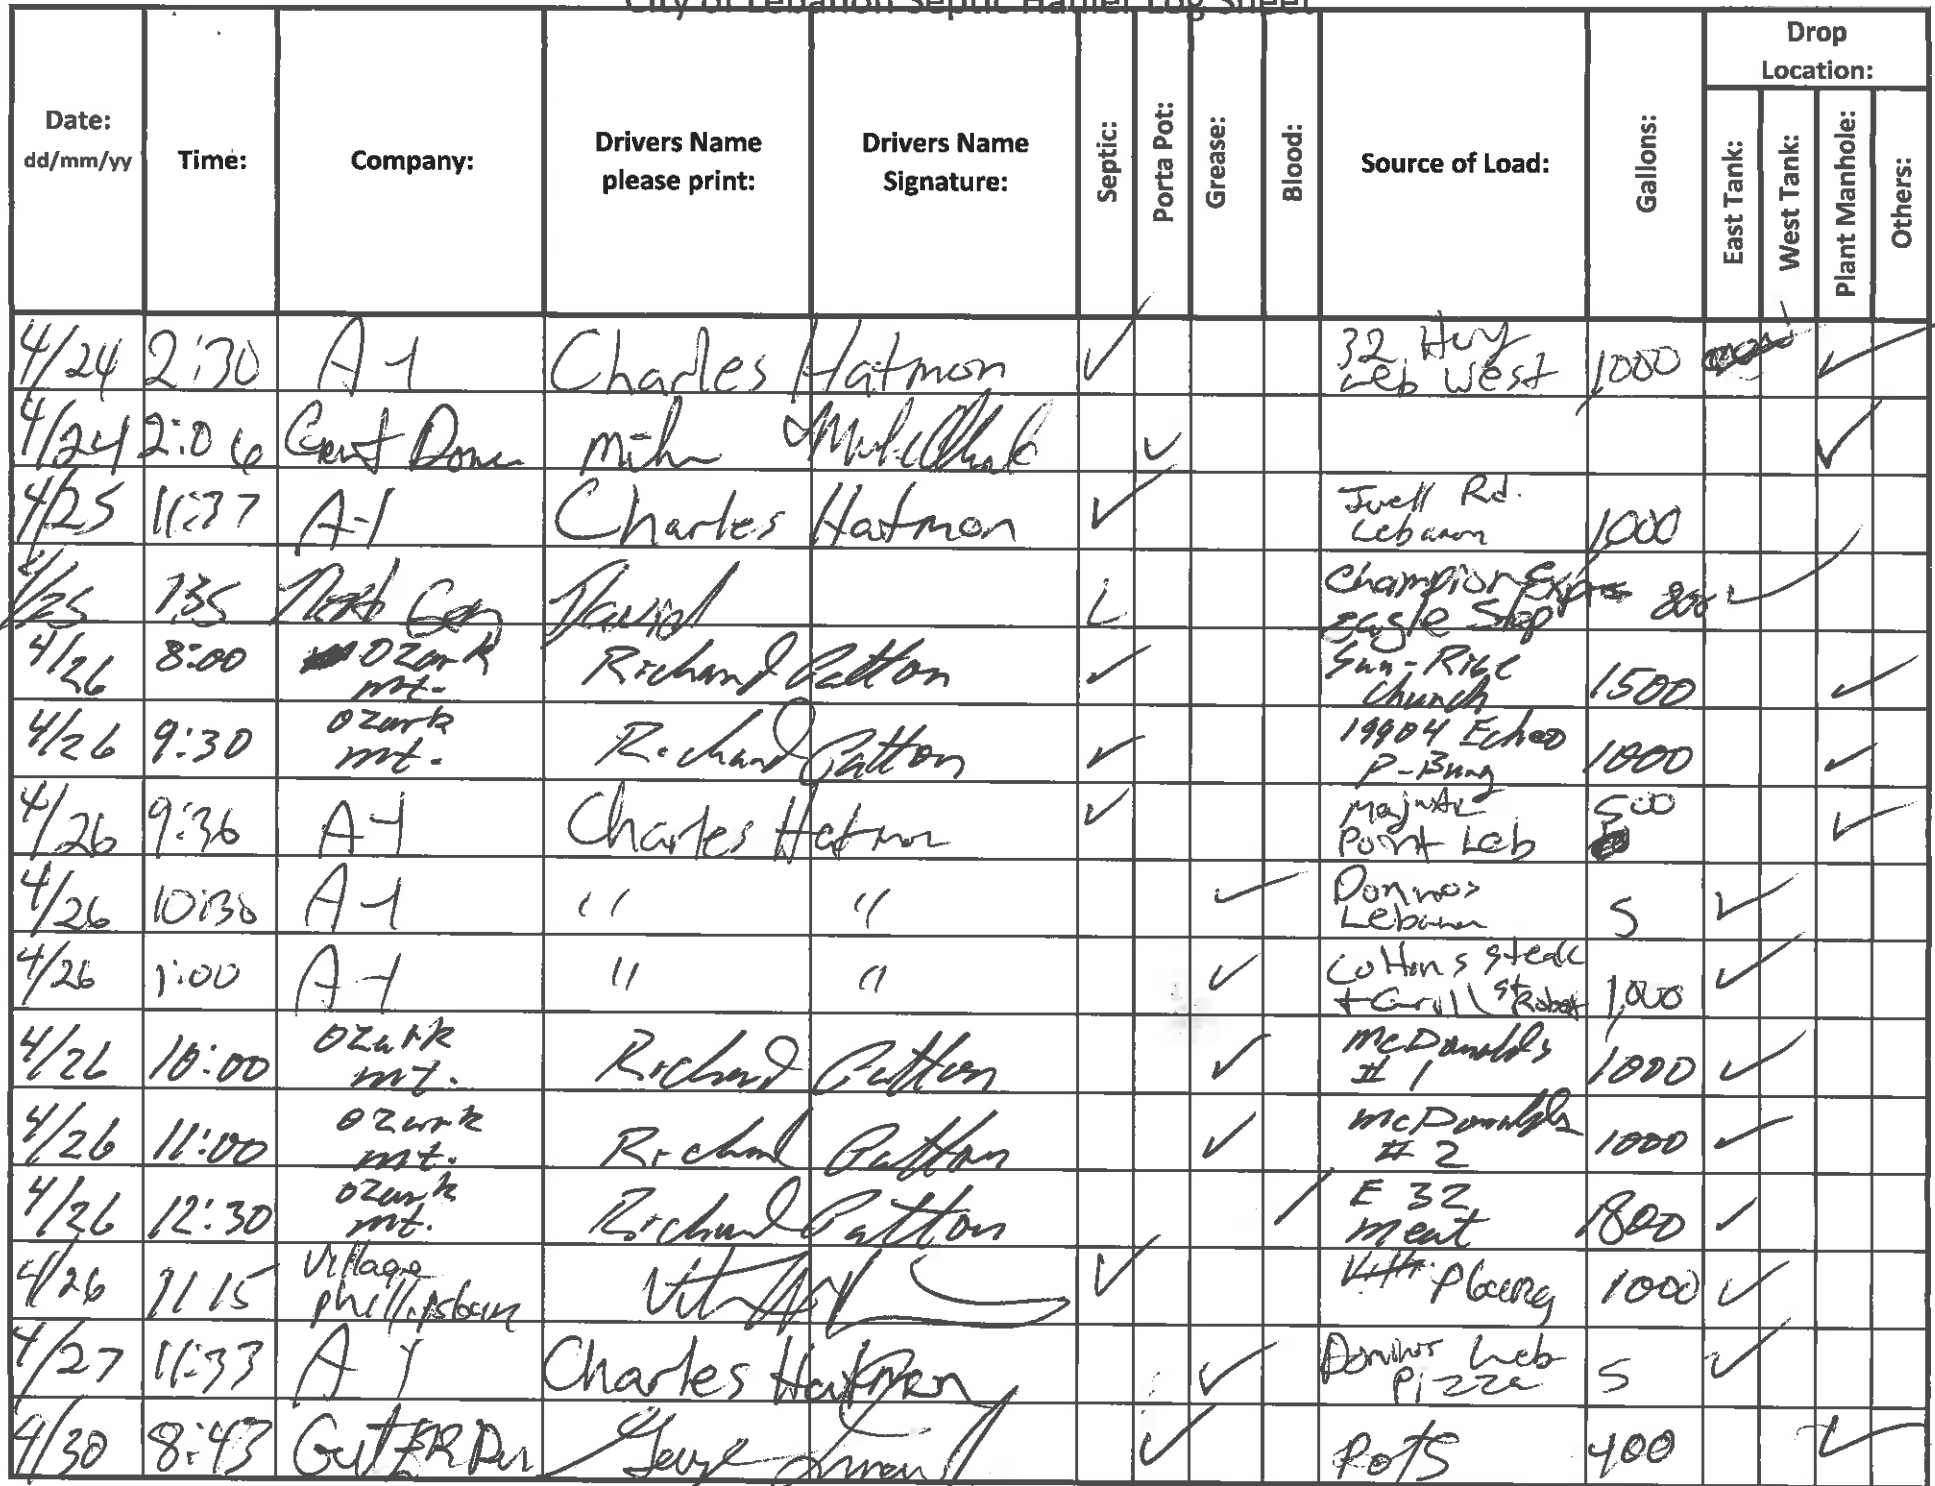 City of Lebanon Septic Hauler Log Sheet
Date: dd/mm/yy Time: Company: Drivers Name please print: Drivers Name Signature: Septic: Porta Pot: Grease: Blood: Source of Load: Gallons: Drop Location: East Tank: West Tank: Plant Manhole: Others:
4/24 2:30 A-1 Charles Hatmon ✓ 32 Hwy Leb West 1000 ✓
4/24 2:06 ✓ ✓
4/25 11:37 A-1 Charles Hatmon ✓ Lebanon 1000
4/25 735 Next Gen David Champion eagle Stop ✓
4/26 8:00 Ozark mt. Richard Patton ✓ Sun-Rise Church 1500 ✓
4/26 9:30 Ozark mt. Richard Patton ✓ 19904 Echo 1000 ✓
4/26 9:36 A-1 Charles Hatmon ✓ Point Leb 500 ✓
4/26 10:30 A-1 " " ✓ Dominos Lebanon 5 ✓
4/26 1:00 A-1 " " ✓ Cottons steak + Grill St Robert 1,000 ✓
4/26 10:00 Ozark mt. Richard Patton ✓ McDonalds # 1 1000 ✓
4/26 11:00 Ozark mt. Richard Patton ✓ McDonalds # 2 1000 ✓
4/26 12:30 Ozark mt. Richard Patton / E 32 meat 1800 ✓
4/26 1115 Village phillipsburg ✓ Pburg 1000 ✓
4/27 11:33 A 1 Charles Hatmon ✓ Dominos Leb Pizza 5 ✓
4/30 8:43 George ✓ Pots 400 ✓